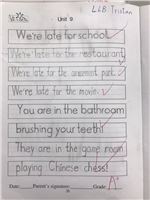 LEB Tristan
Unit 9
We're late for school.
We're late for the restaurant.
We're late for the amusement park.
We're late for the movie.
You are in the bathroom
brushing your teeth!
They are in the game room
playing Chinese chess!
Date: Parent's signature: Grade: A+